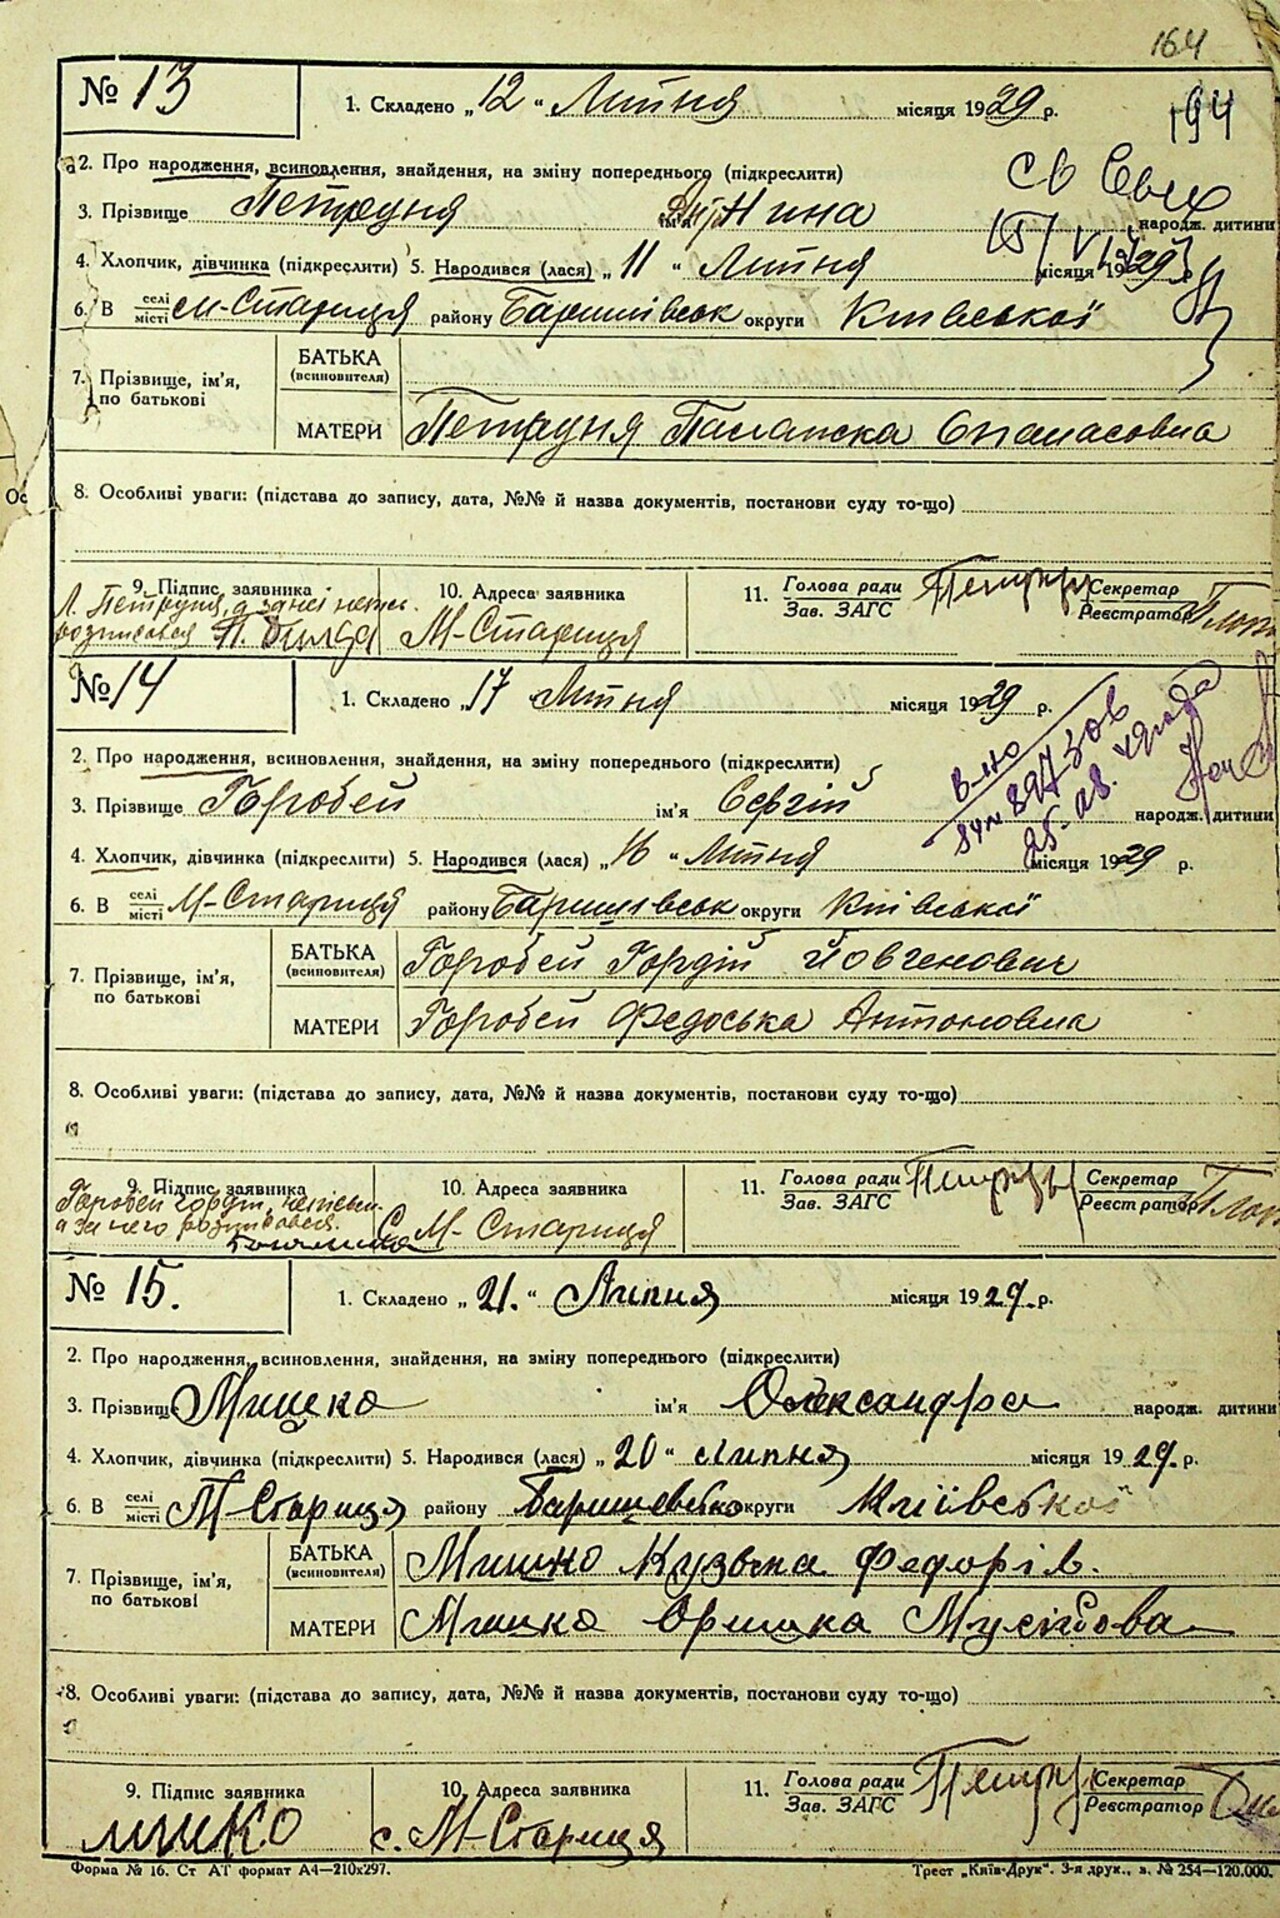 164
№ 13
1. Складено „12“ Липня місяця 1929 р.
194
2. Про народження, всиновлення, знайдення, на зміну попереднього (підкреслити)
3. Прізвище Петруня ім'я Нина народж. дитини
4. Хлопчик, дівчинка (підкреслити) 5. Народився (лася) „11“ Липня місяця 1929 р.
6. В селі місті М-Стариця району Баришівськ округи Київської
7. Прізвище, ім'я, по батькові
БАТЬКА (всиновителя)
МАТЕРИ Петруня Палажка Опанасовна
8. Особливі уваги: (підстава до запису, дата, №№ й назва документів, постанови суду то-що)
9. Підпис заявника 10. Адреса заявника 11. Голова ради Зав. ЗАГС Секретар Реєстратор
П. Петруня, а за неї непис.
розписався
М-Стариця
№ 14
1. Складено „17 Липня місяця 1929 р.
2. Про народження, всиновлення, знайдення, на зміну попереднього (підкреслити)
3. Прізвище Горобей ім'я Сергій народж. дитини
4. Хлопчик, дівчинка (підкреслити) 5. Народився (лася) „16“ Липня місяця 1929 р.
6. В селі місті М-Стариця району Баришівськ округи Київської
7. Прізвище, ім'я, по батькові
БАТЬКА (всиновителя) Горобей Гордій Йовгенович
МАТЕРИ Горобей Федоська Антоновна
8. Особливі уваги: (підстава до запису, дата, №№ й назва документів, постанови суду то-що)
9. Підпис заявника 10. Адреса заявника 11. Голова ради Зав. ЗАГС Секретар Реєстратор
Горобей Гордій
а за него розписався
С М-Стариця
№ 15.
1. Складено „21.“ Липня місяця 1929. р.
2. Про народження, всиновлення, знайдення, на зміну попереднього (підкреслити)
3. Прізвище Мишко ім'я Олександра народж. дитини
4. Хлопчик, дівчинка (підкреслити) 5. Народився (лася) „20“ липня місяця 1929. р.
6. В селі місті М-Стариця району Баришевсько округи Київської
7. Прізвище, ім'я, по батькові
БАТЬКА (всиновителя) Мишко Кузьма Федорів.
МАТЕРИ Мишко Оришка Мусійова
8. Особливі уваги: (підстава до запису, дата, №№ й назва документів, постанови суду то-що)
9. Підпис заявника 10. Адреса заявника 11. Голова ради Зав. ЗАГС Секретар Реєстратор
мишко с. М-Стариця
Форма № 16. Ст АТ формат А4—210х297. Трест „Київ-Друк“. 3-я друк., з. № 254—120.000.